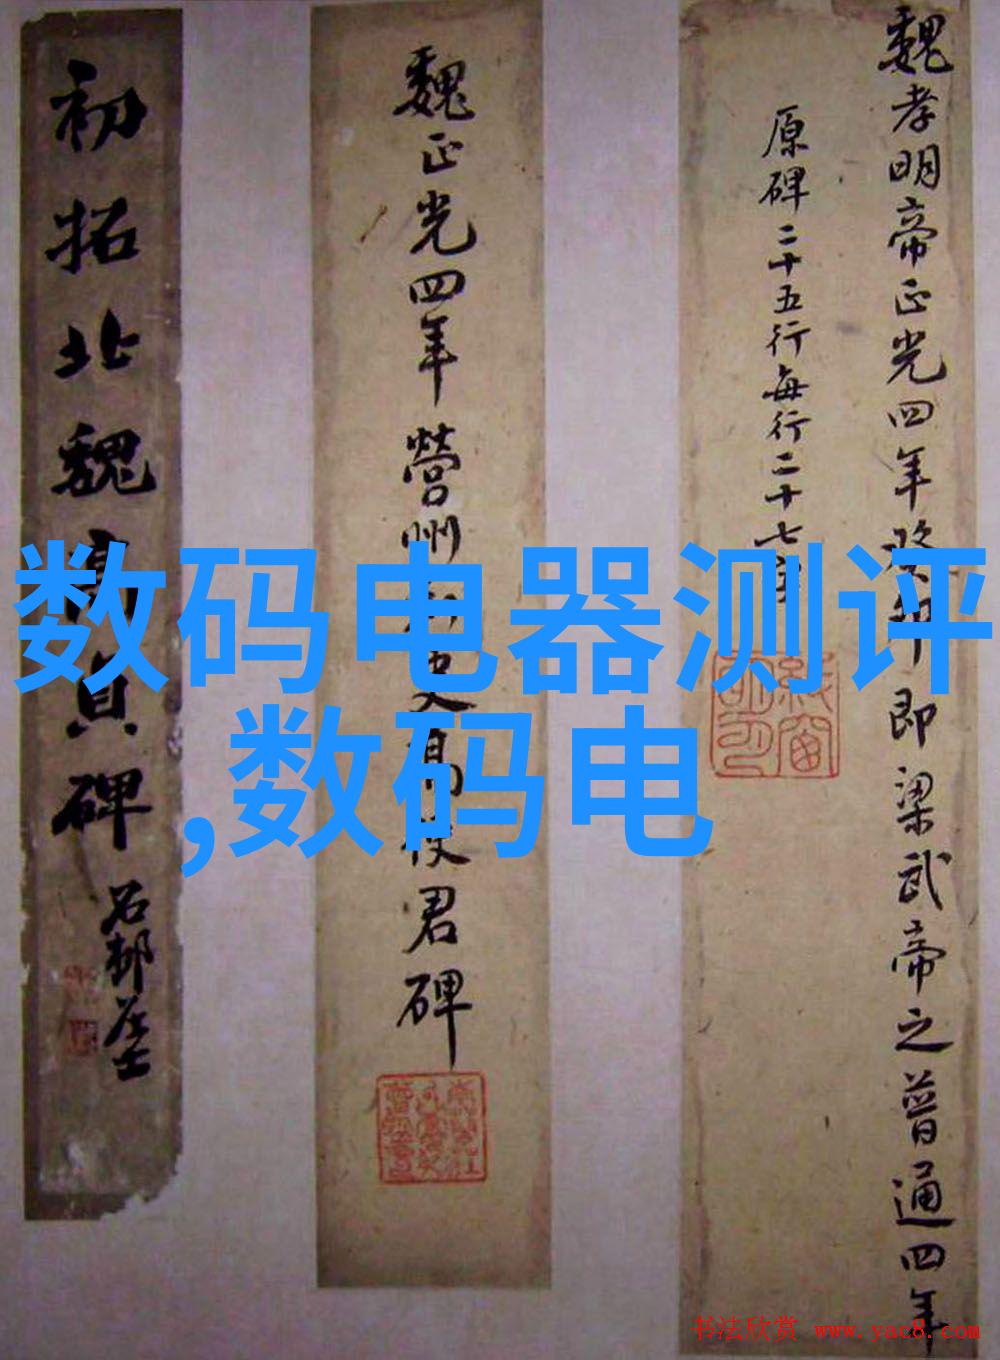 魏孝明帝正光四年癸卯即梁武帝之普通四年
原碑二十五行每行二十七字
魏正光四年營州刺史高使君碑
初拓北魏高貞碑
石邨居士
数码电器测评
,数码电
书法欣赏 www.yac8.com